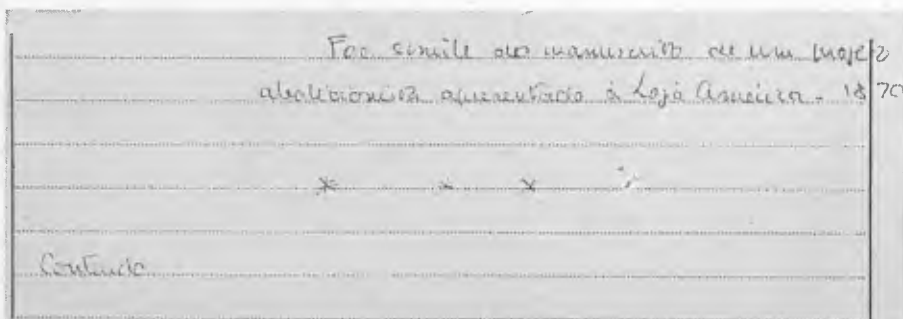 Fac simile do manuscrito de um projeto
abolicionista apresentado à Loja América - 1870
* * * *
Conteúdo